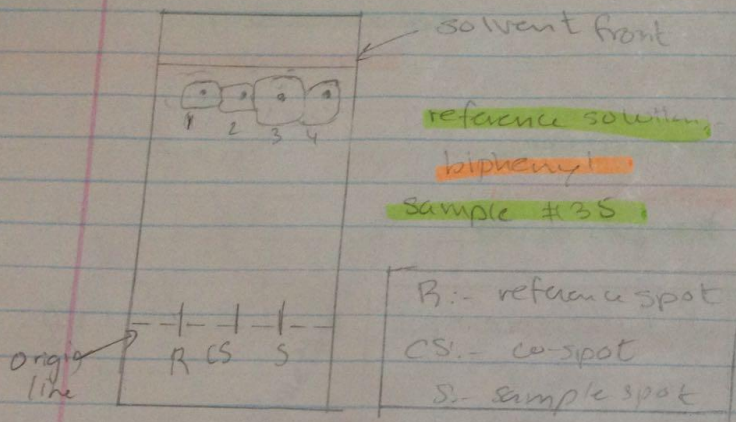 solvent front
1 2 3 4
reference solution
biphenyl
sample #35
R CS S
origin
line
R:- reference spot
CS:- co-spot
S:- sample spot